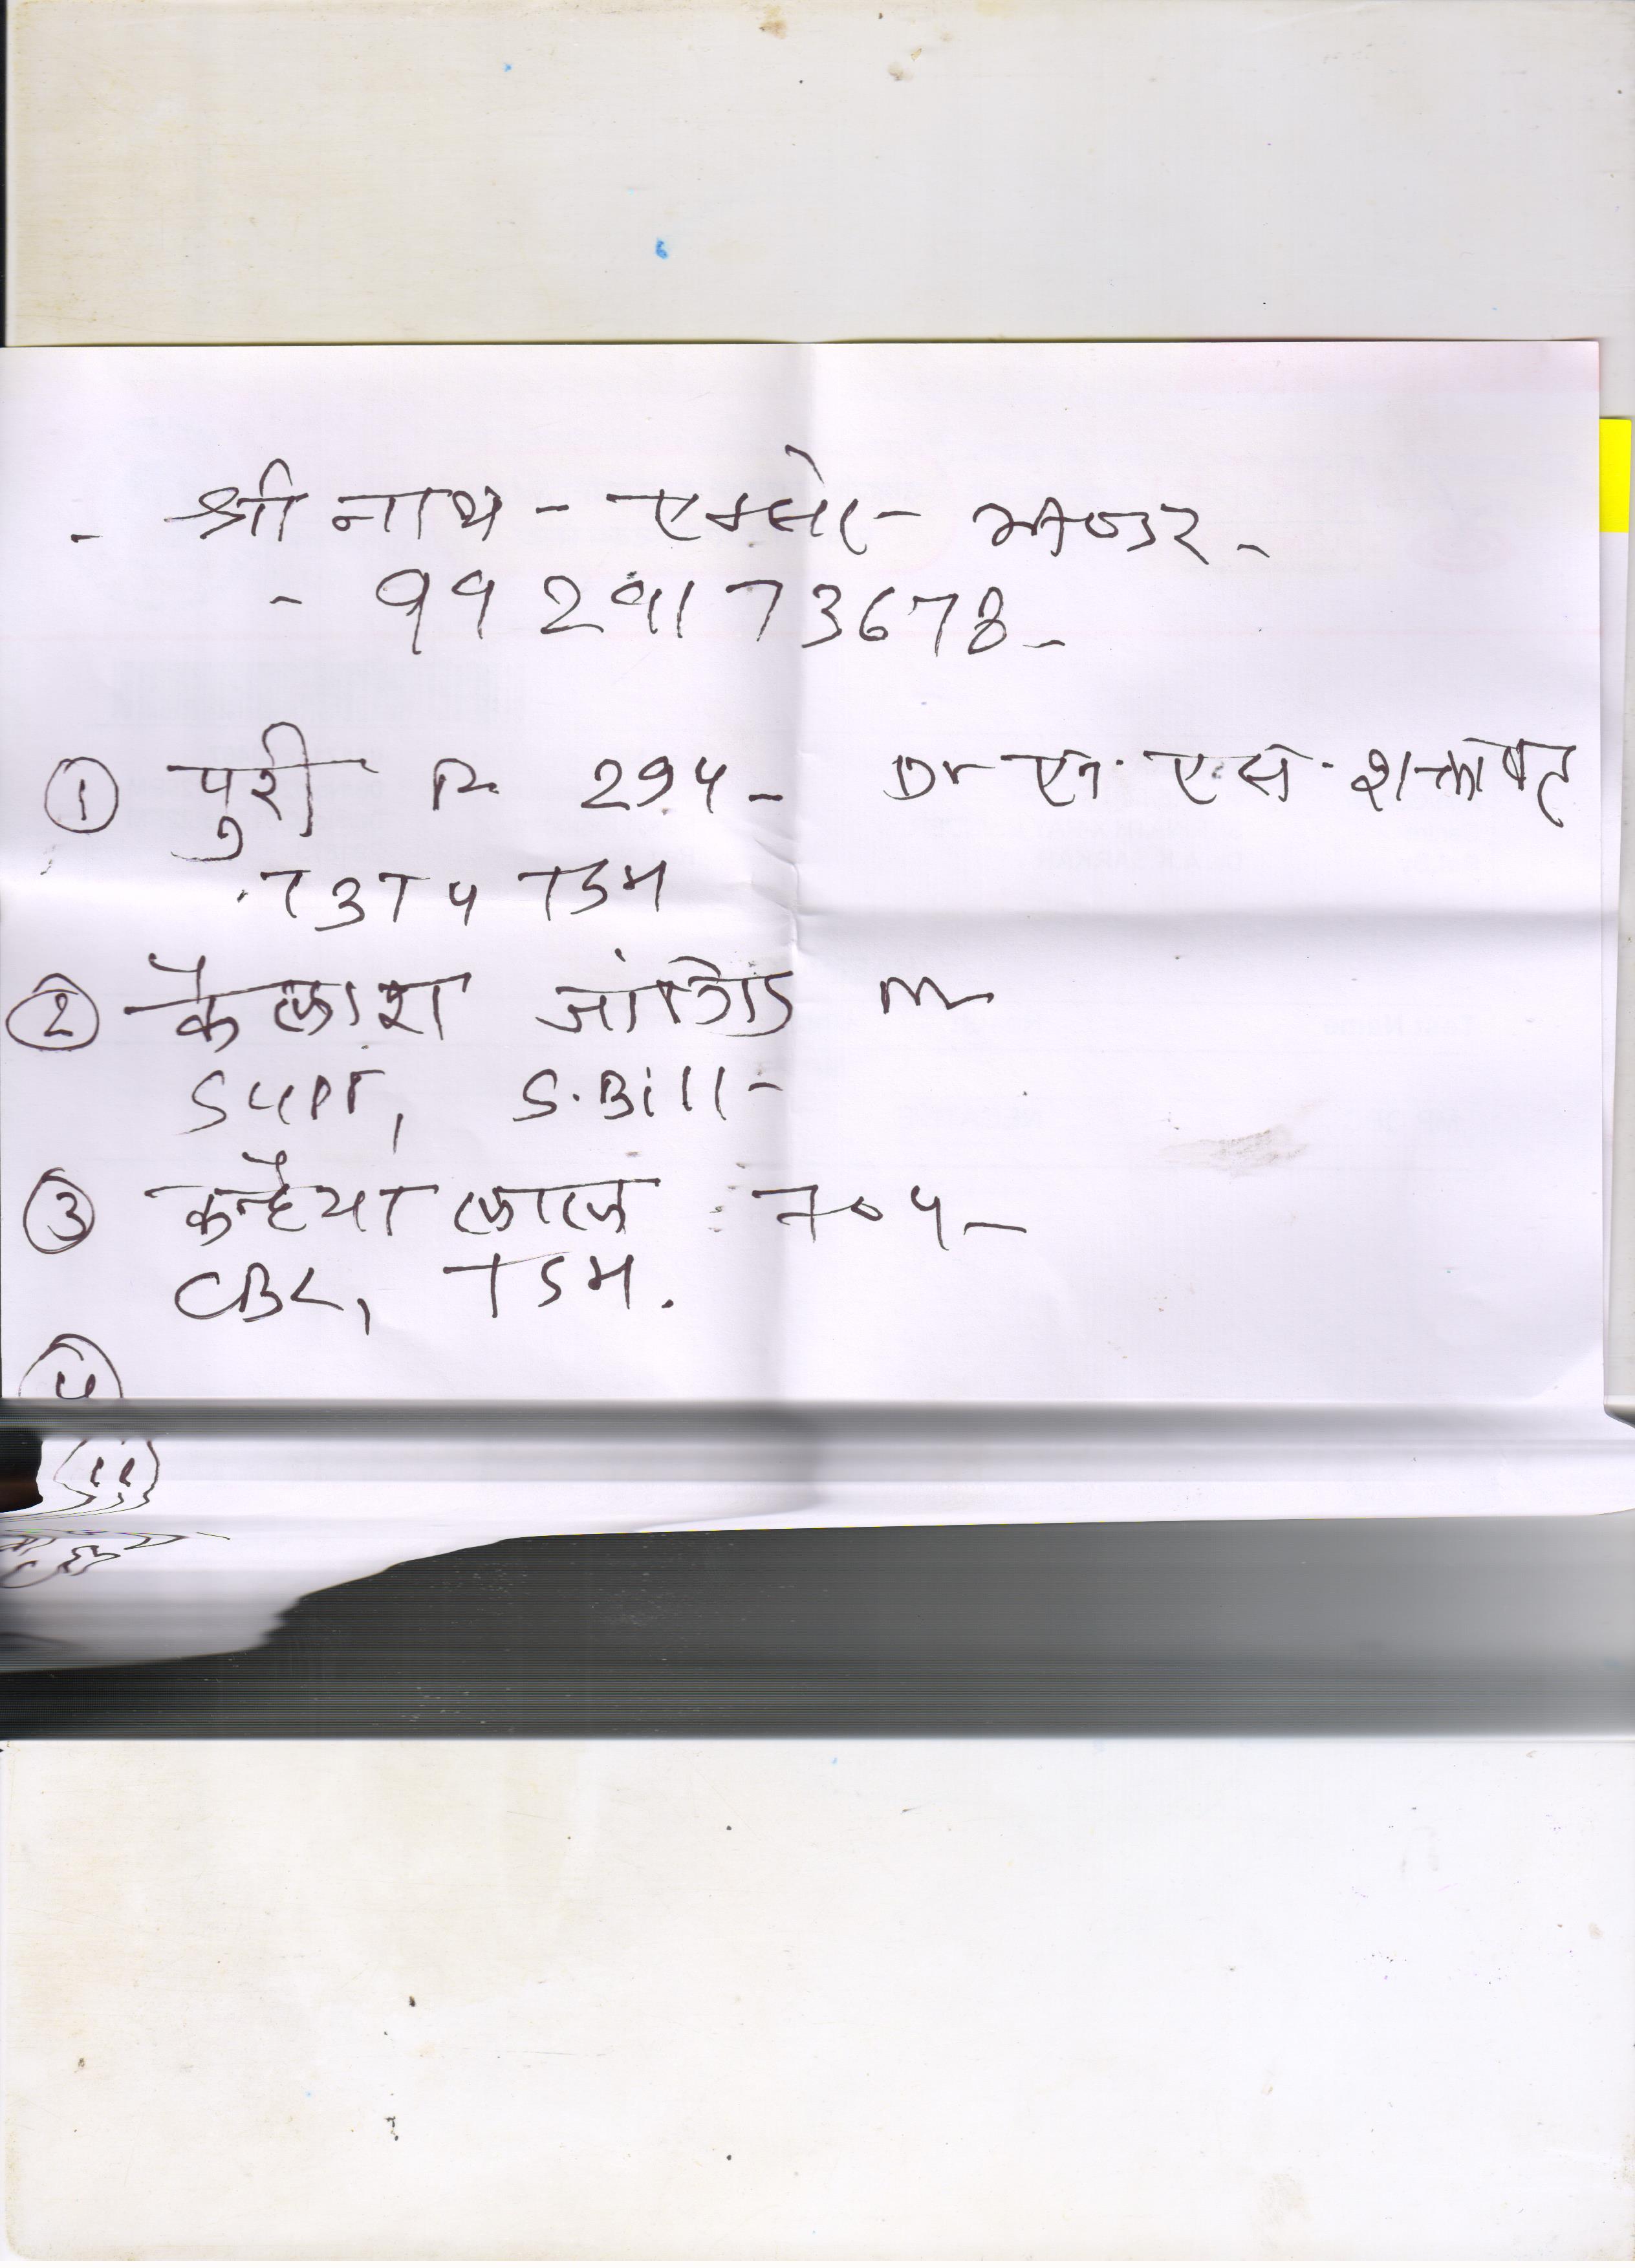 - श्री नाथ - एम्पोर - भण्डर -
- 9929173678 -
① पुरी 294 - Dr एन. एस. शक्तावत
T3T4 TSM
② कैलाश जांगिड
SUPT, S.Bill -
③ कन्हैया लाल 704 -
CBC, TSM.
④